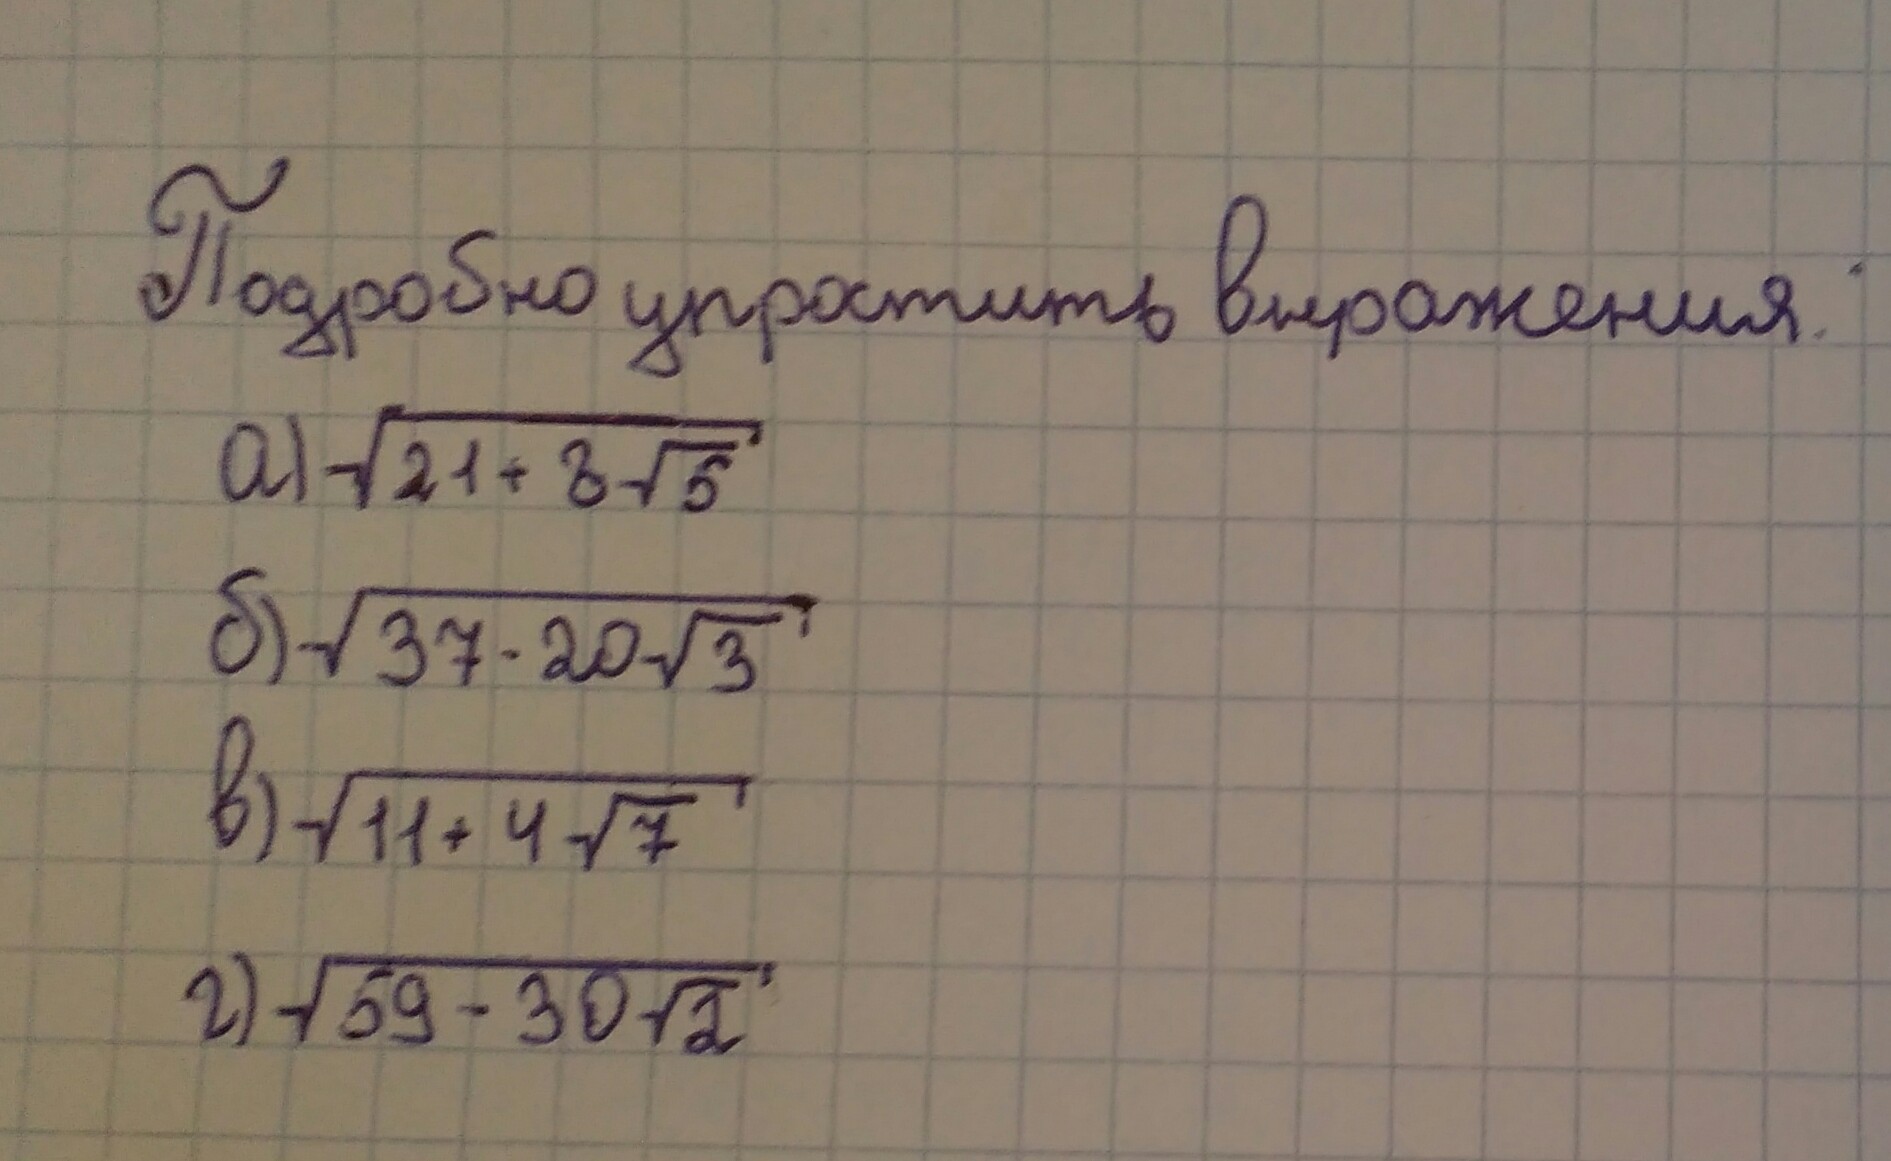 Подробно упростить выражения:
а) √(21 + 8√5)
б) √(37 - 20√3)
в) √(11 + 4√7)
г) √(59 - 30√2)